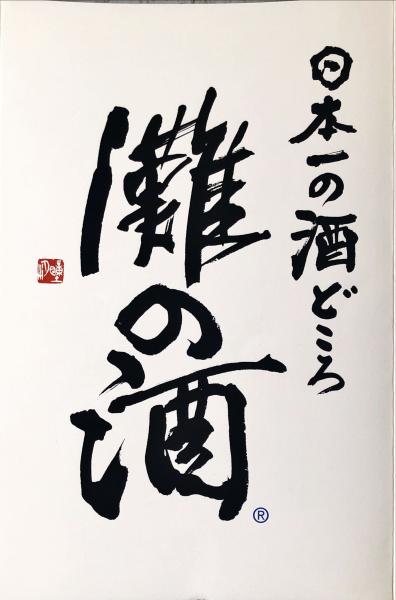 日本一の酒どころ
灘の酒
®